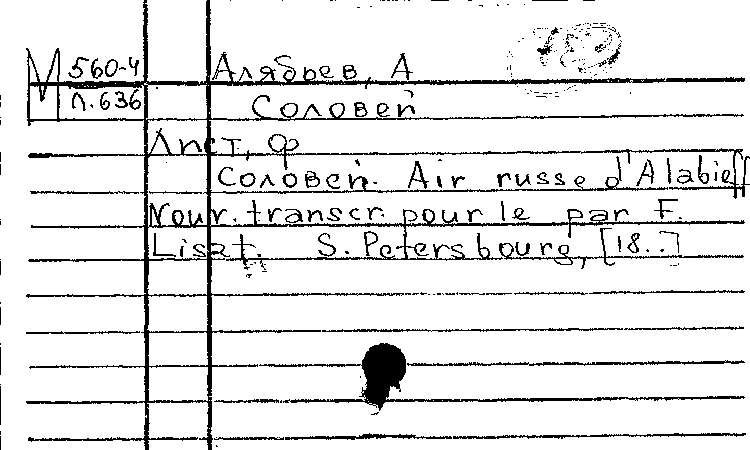 М 560-4 Алябьев, А
Л.636 Соловей
Лист, Ф
Соловей. Air russe d'Alabieff
Nouv. transcr. pour le par F.
Liszt. S. Petersbourg, [18..]